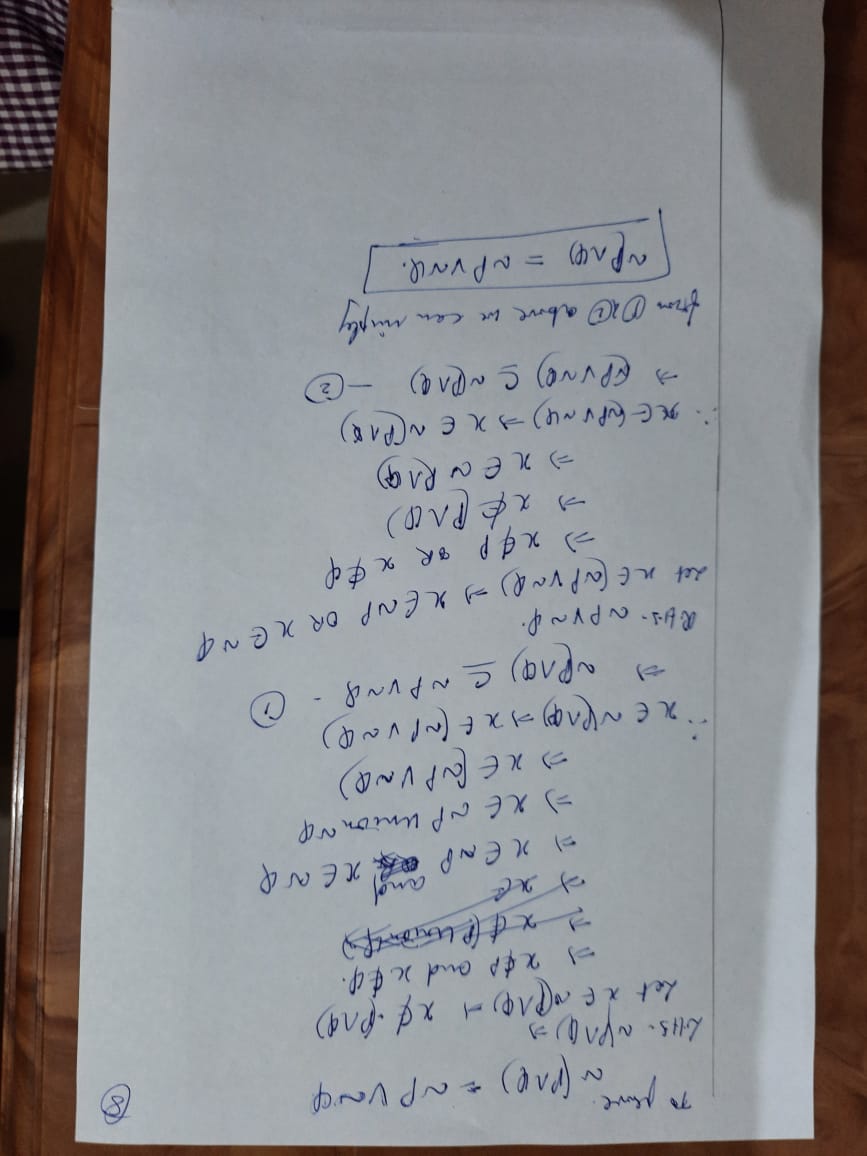 8
To prove.
~(P∧Q) = ~P ∨ ~Q
LHS. ~(P∧Q) ⇒
Let x ∈ ~(P∧Q) ⇒ x ∉ (P∧Q)
⇒ x ∉ P and x ∉ Q.
⇒ x ∉ (P union Q)
⇒ x ∈
⇒ x ∈ ~P and x ∈ ~Q
⇒ x ∈ ~P union ~Q
⇒ x ∈ (~P ∨ ~Q)
∴ x ∈ ~(P∧Q) ⇒ x ∈ (~P ∨ ~Q)
⇒ ~(P∧Q) ⊆ ~P ∨ ~Q - ①
RHS. ~P ∨ ~Q.
Let x ∈ (~P ∨ ~Q) ⇒ x ∈ ~P OR x ∈ ~Q
⇒ x ∉ P OR x ∉ Q
⇒ x ∉ (P∧Q)
⇒ x ∈ ~ P∧Q)
∴ x ∈ (~P ∨ ~Q) ⇒ x ∈ ~(P∧Q)
⇒ (~P ∨ ~Q) ⊆ ~(P∧Q) — ②
from ① & ② above we can imply
~(P∧Q) = ~P ∨ ~Q.